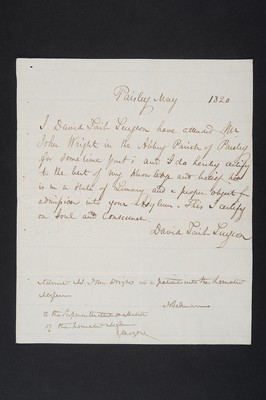 Paisley May 1820
I David Tait Surgeon have attended Mr
John Wright in the Abbey Parish of Paisley
for some time past; and I do hereby certify
to the best of my knowledge and belief he
is in a state of Lunacy and a proper object for
admission into your Asylum. This I certify
on Soul and Conscience.
David Tait Surgeon
John Wright as a patient into the Lunatic
Asylum
to the Superintendent
of the Lunatic Asylum
Glasgow